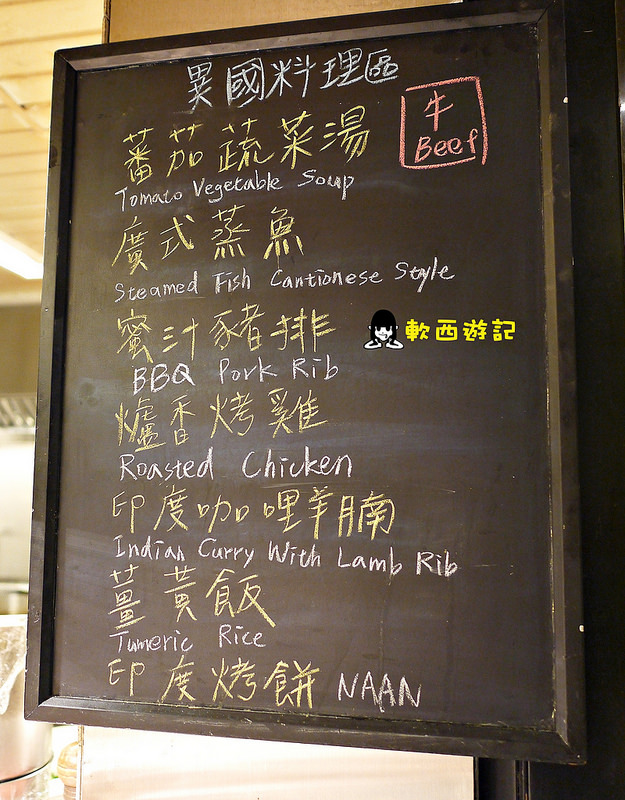 異國料理區
牛
Beef
蕃茄蔬菜湯
Tomato Vegetable Soup
廣式蒸魚
Steamed Fish Cantionese Style
蜜汁豬排
軟西遊記
BBQ Pork Rib
爐香烤雞
Roasted Chicken
印度咖哩羊腩
Indian Curry With Lamb Rib
薑黃飯
Tumeric Rice
印度烤餅 NAAN